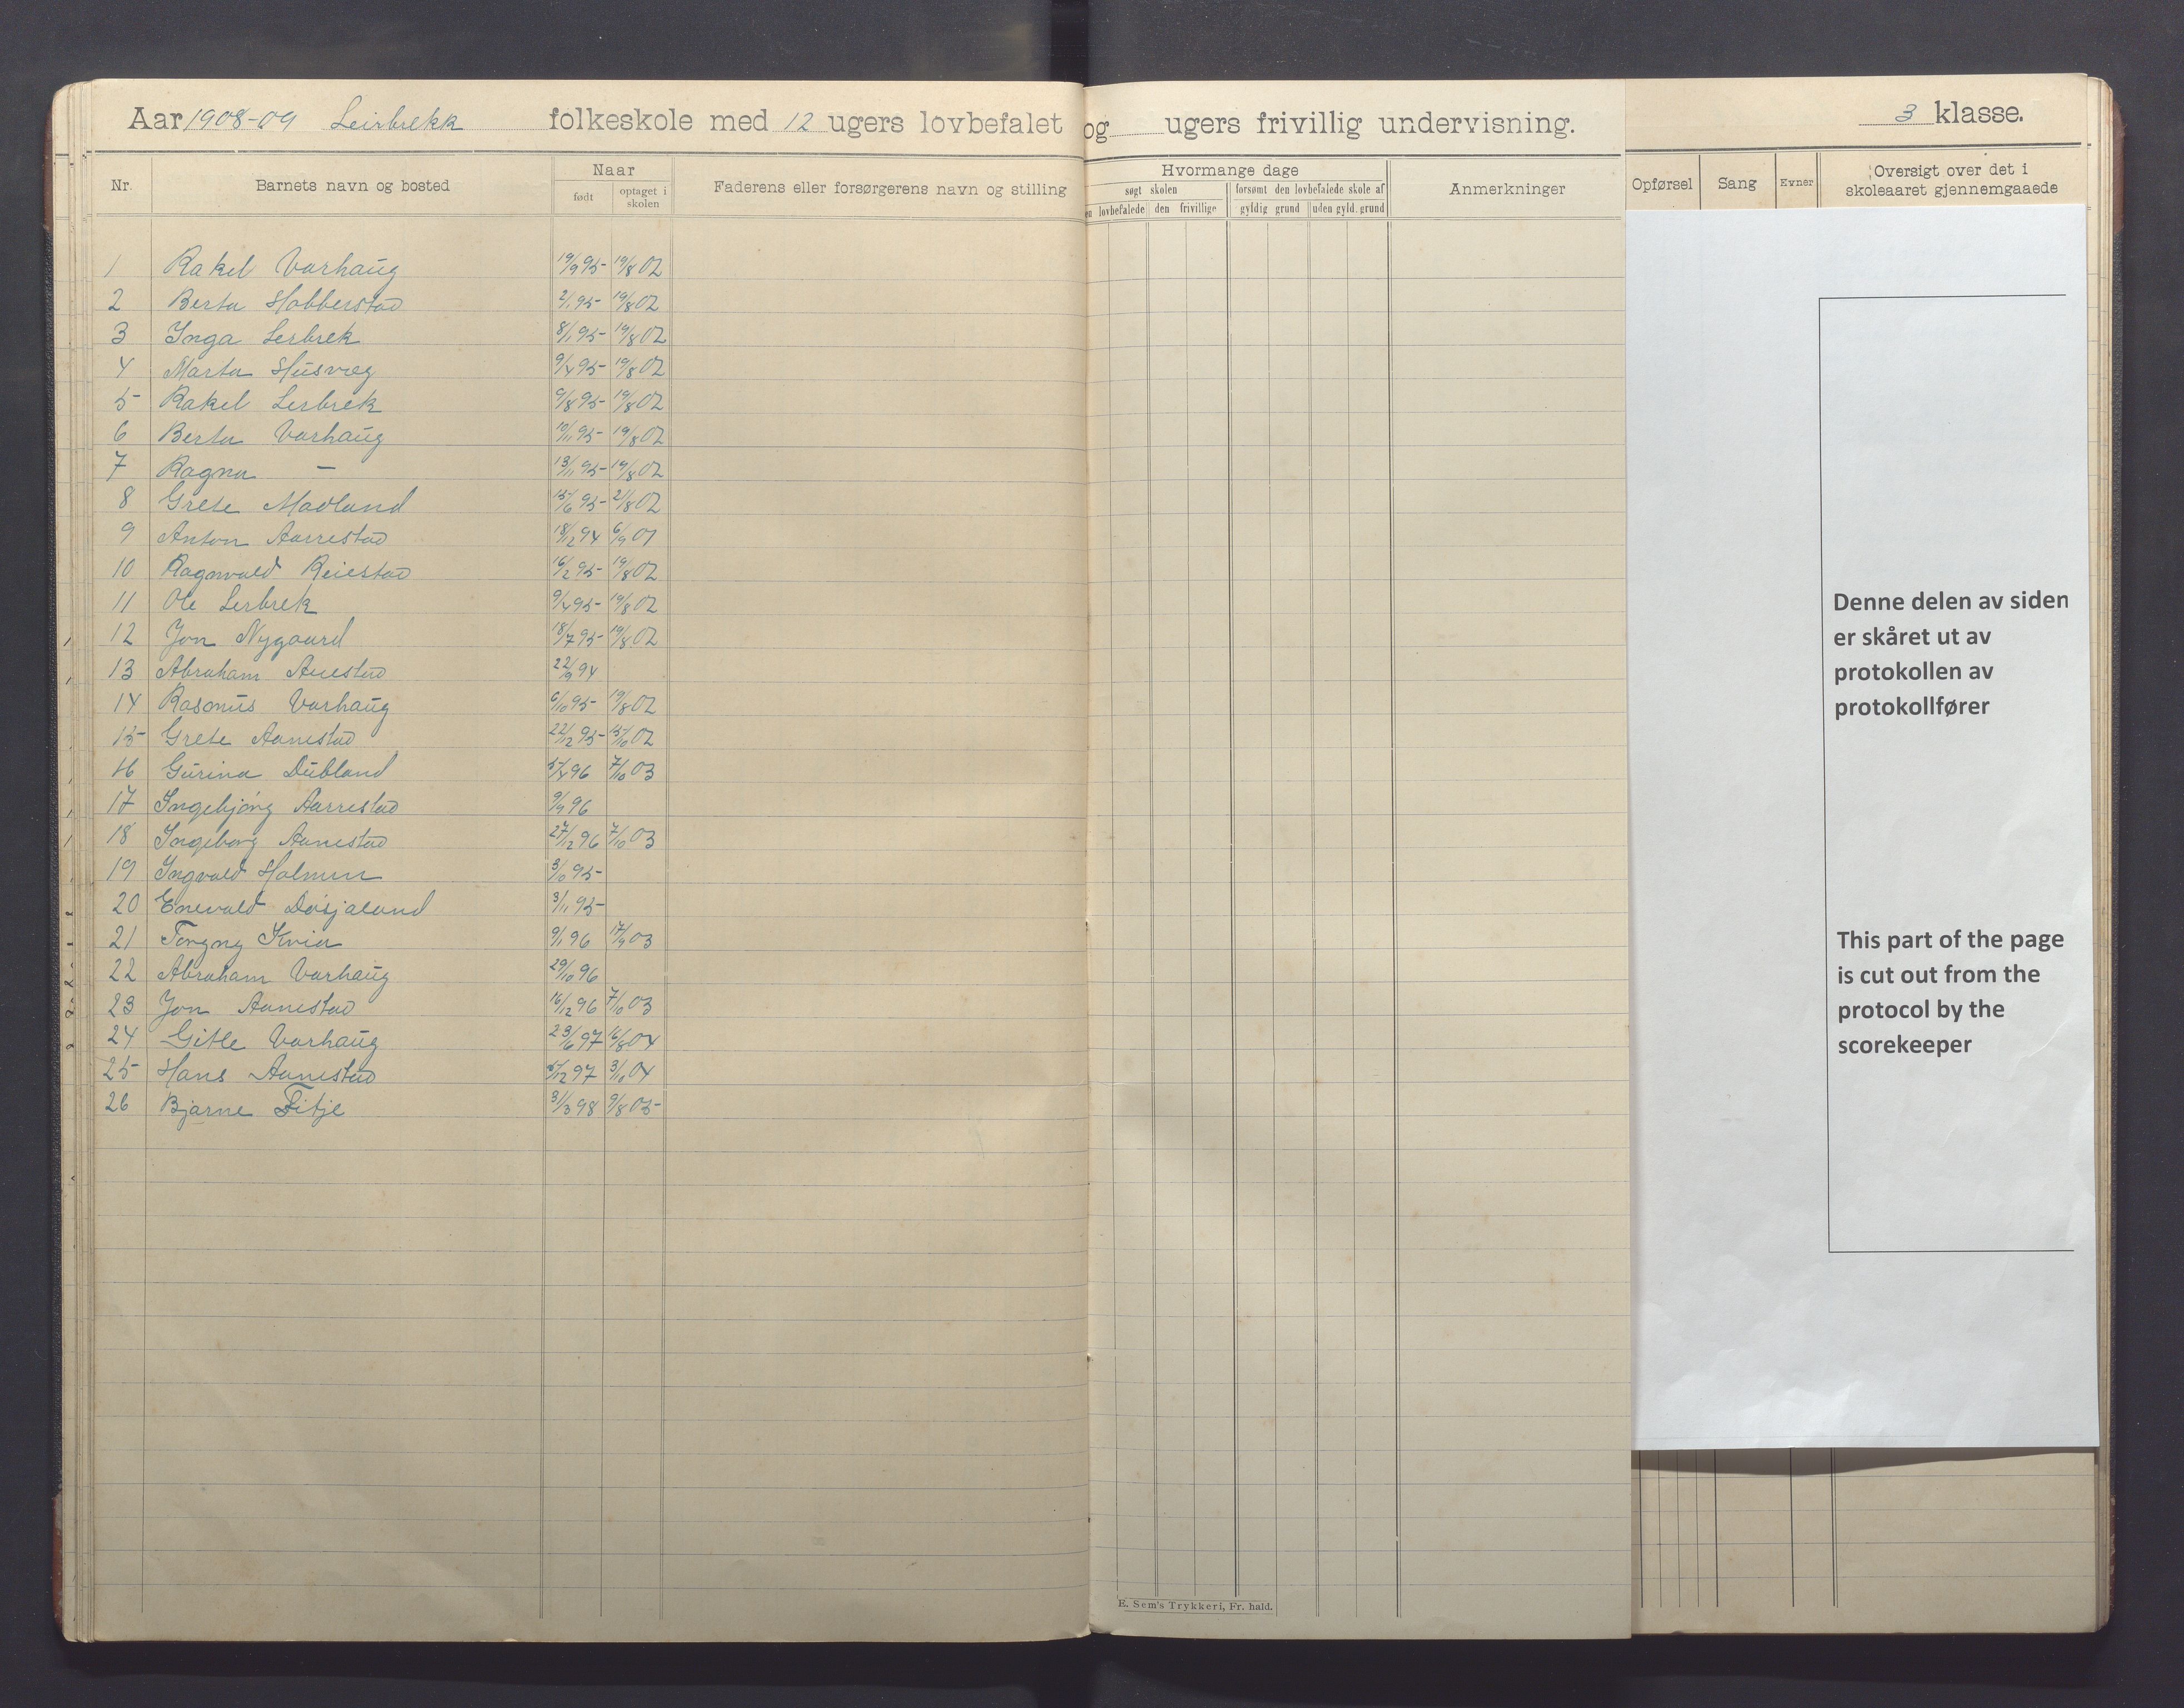 Aar 1908-09 Leirbrekk folkeskole med 12 ugers lovbefalet og ugers frivillig undervisning. 3 klasse.
Nr. Barnets navn og bosted Naar født optaget i skolen Faderens eller forsørgerens navn og stilling Hvormange dage søgt skolen en lovbefalede den frivillige forsømt den lovbefalede skole af gyldig grund uden gyld. grund Anmerkninger Opførsel Sang Evner Oversigt over det i skoleaaret gjennemgaaede
1 Rakel Varhaug 19/9 95 19/8 02
2 Berta Hobberstad 2/1 95 19/8 02
3 Inga Lerbrek 8/1 95 19/8 02
4 Marta Husveg 9/4 95 19/8 02
5 Rakel Lerbrek 9/8 95 19/8 02
6 Berta Varhaug 10/11 95 19/8 02
7 Ragna — 13/11 95 19/8 02
8 Grete Madland 15/6 95 21/8 02
9 Anton Aarrestad 18/12 94 6/9 01
10 Ragnvald Reiestad 16/2 95 19/8 02
11 Ole Lerbrek 9/4 95 19/8 02
12 Jon Nygaard 18/7 95 19/8 02
13 Abraham 22/9 94
14 Rasmus Varhaug 6/10 95 19/8 02
15 Grete Aanestad 22/12 95 15/10 02
16 Gurina Dubland 5/4 96 7/10 03
17 Ingebjørg Aarrestad 9/9 96
18 Ingeborg Aanestad 27/12 96 7/10 03
19 Ingvald Holmen 3/10 95
20 Enevald Døsjaland 3/11 95
21 Torgny Kvia 9/1 96 17/9 03
22 Abraham Varhaug 29/10 96
23 Jon Aanestad 16/12 96 7/10 03
24 Gitle Varhaug 23/6 97 16/8 04
25 Hans Aanestad 5/12 97 3/10 04
26 Bjarne Fitje 31/3 98 9/8 05
Denne delen av siden
er skåret ut av
protokollen av
protokollfører
This part of the page
is cut out from the
protocol by the
scorekeeper
E. Sem's Trykkeri, Fr. hald.